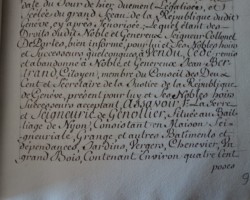 daté du Jour de hier duement Légalisée, et
Scelée du grand Sceau de la République dudit
Genêve, cy après ténorisée; Lequel étant des
Droits dudit Noble et Genereux Seigneur Collonel
De Portes, bien informé, pour lui et ses Nobles hoirs
et Successeurs quelconques, Vendu, Cédé, remis
et abandonné à Noble et Genereux Jean Ber-
trand, Citoyen, membre du Conseil des Deux
Cent et Secretaire de la Justice de la République
de Genêve, présent pour luy et ses Nobles hoirs
Successeurs acceptant, Assavoir, La Terre
et Seigneurie de Genollier, Située au Bail-
liage de Nyon, Consistant en Maison Sei-
gneuriale, Grange et autres Batiments et
dépendances, Jardins, Vergers, Chenevier, Un
grand Bois, Contenant environ quatre cent
poses